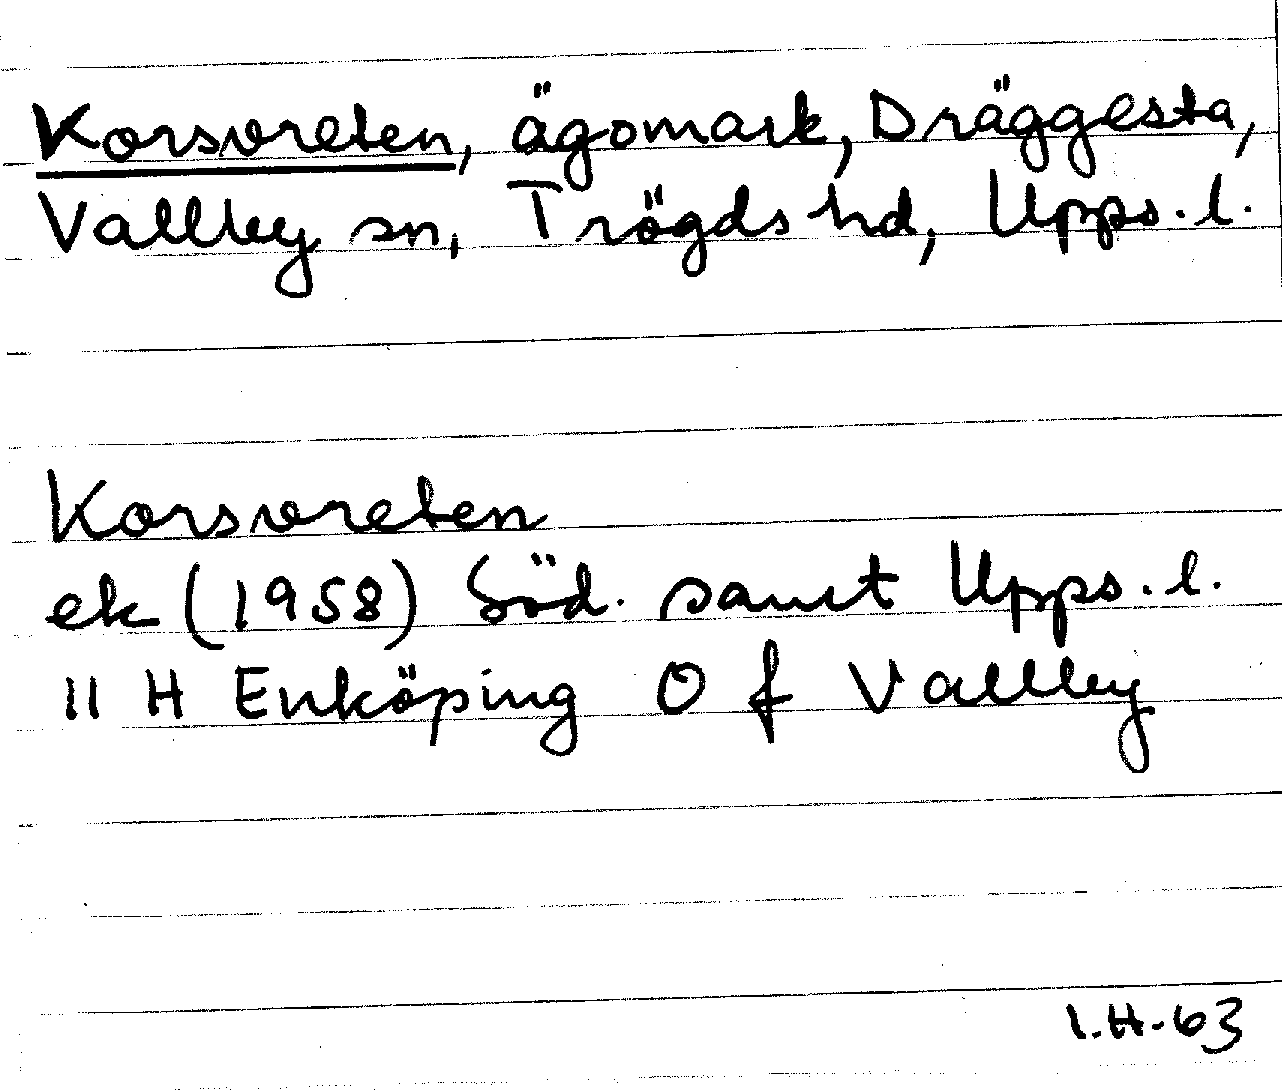 Korsvreten, ägomark, Dräggesta,
Vallby sn, Trögds hd, Upps. l.
Korsvreten
ek (1958) Söd. samt Upps. l.
11 H Enköping O f Vallby
I.H-63